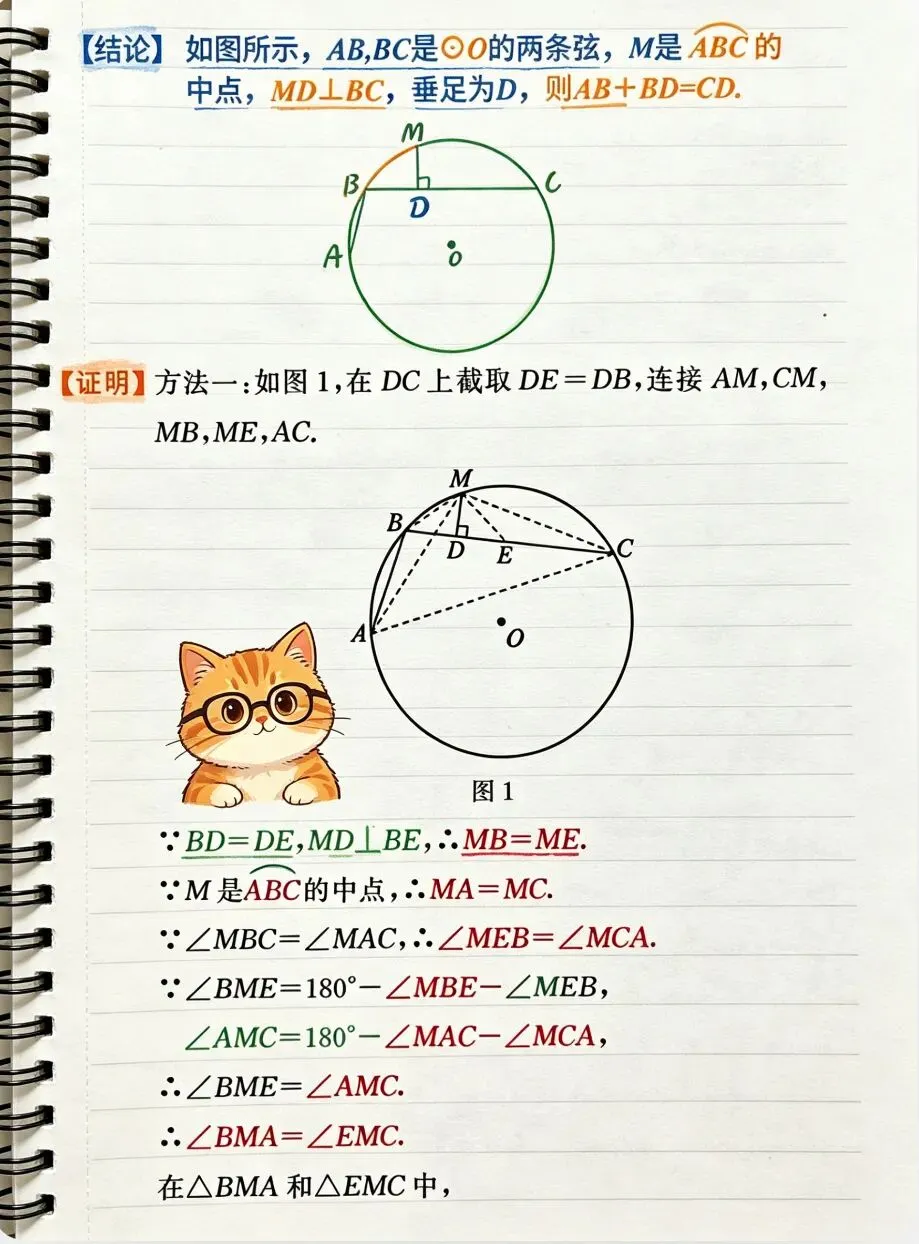 【结论】 如图所示，AB,BC是⊙O的两条弦，M是 ABC 的
中点，MD⊥BC，垂足为D，则AB＋BD=CD.
M
B
C
D
A
O
【证明】 方法一:如图 1,在 DC 上截取 DE＝DB,连接 AM,CM,
MB,ME,AC.
M
B
D
E
C
A
O
图 1
∵BD＝DE,MD⊥BE,∴MB＝ME.
∵M 是ABC的中点,∴MA＝MC.
∵∠MBC＝∠MAC,∴∠MEB＝∠MCA.
∵∠BME＝180°－∠MBE－∠MEB,
∠AMC＝180°－∠MAC－∠MCA,
∴∠BME＝∠AMC.
∴∠BMA＝∠EMC.
在△BMA 和△EMC 中,